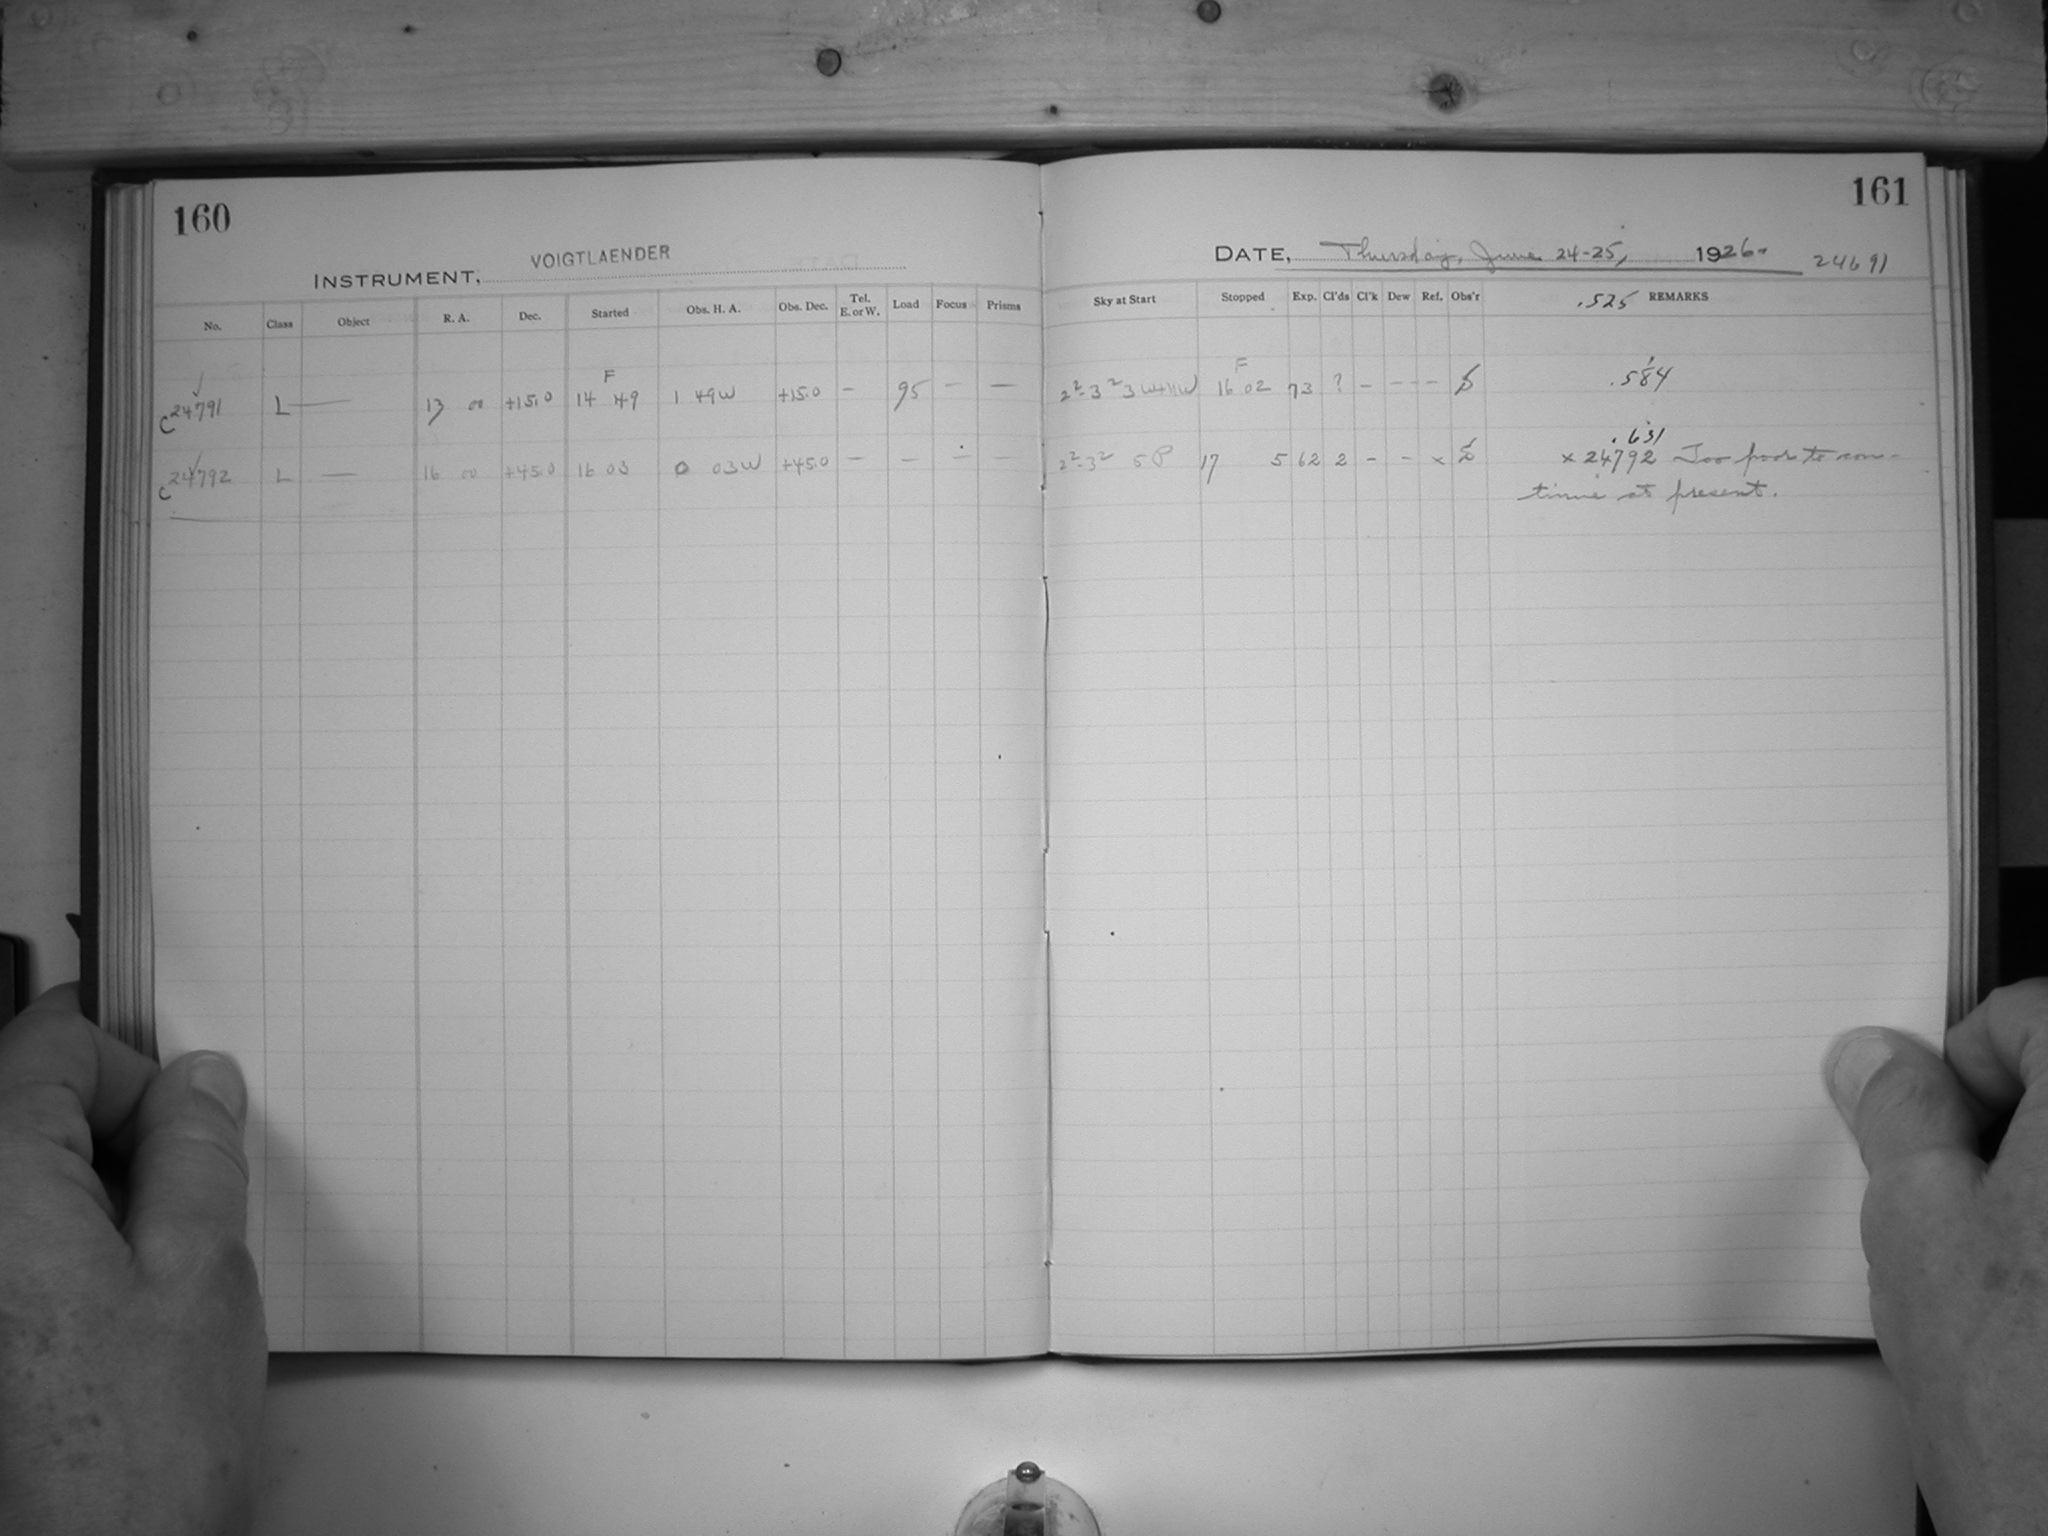 160
INSTRUMENT, VOIGTLAENDER
No. Class Object R. A. Dec. Started Obs. H. A. Obs. Dec. Tel. E. or W. Load Focus Prisms
F
C 24791 L — 13 00 +15.0 14 49 1 49W +15.0 — 95 — —
C 24792 L — 16 00 +45.0 16 03 0 03W +45.0 — — — —
161
DATE, Thursday, June 24-25, 1926. 24691
Sky at Start Stopped Exp. Cl'ds Cl'k Dew Ref. Obs'r .525 REMARKS
F
2²-3² 3 W+NW 16 02 73 ? – – – .584
.631
2²-3² 5P 17 5 62 2 – – x x 24792 Too poor to con-
tinue at present.